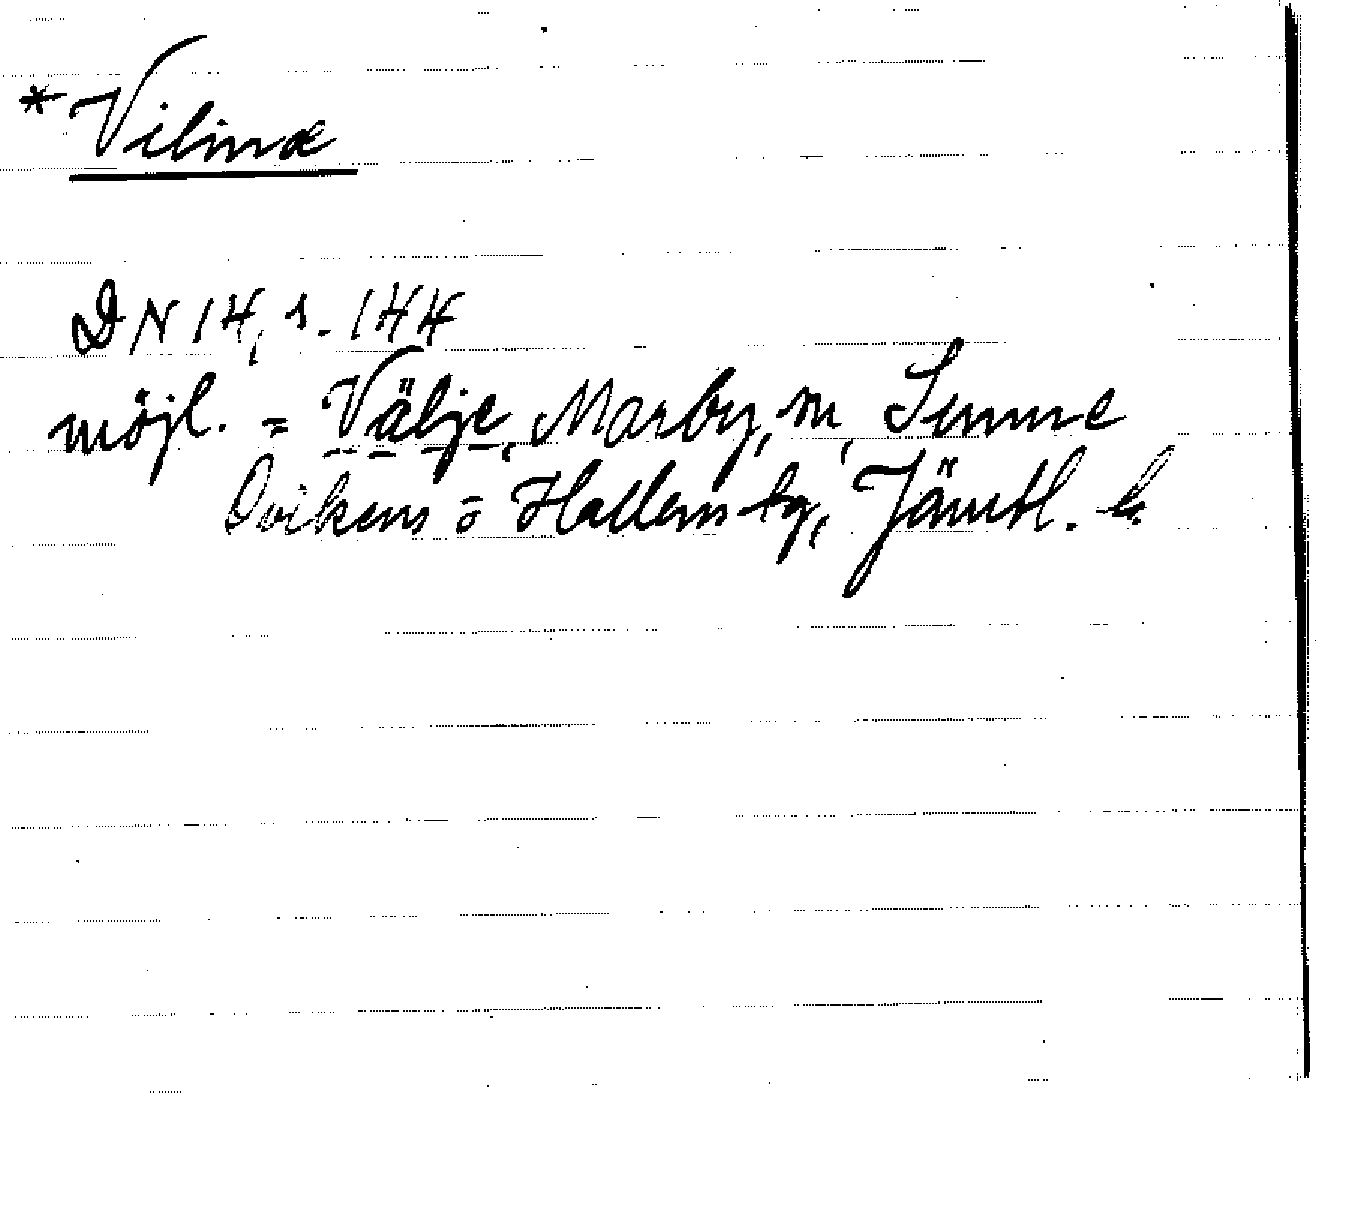 * Vilinæ
DN 14, s. 144
möjl. = Välje, Marby, sn, Sunne
Ovikens o Hallens tg, Jämtl. l.